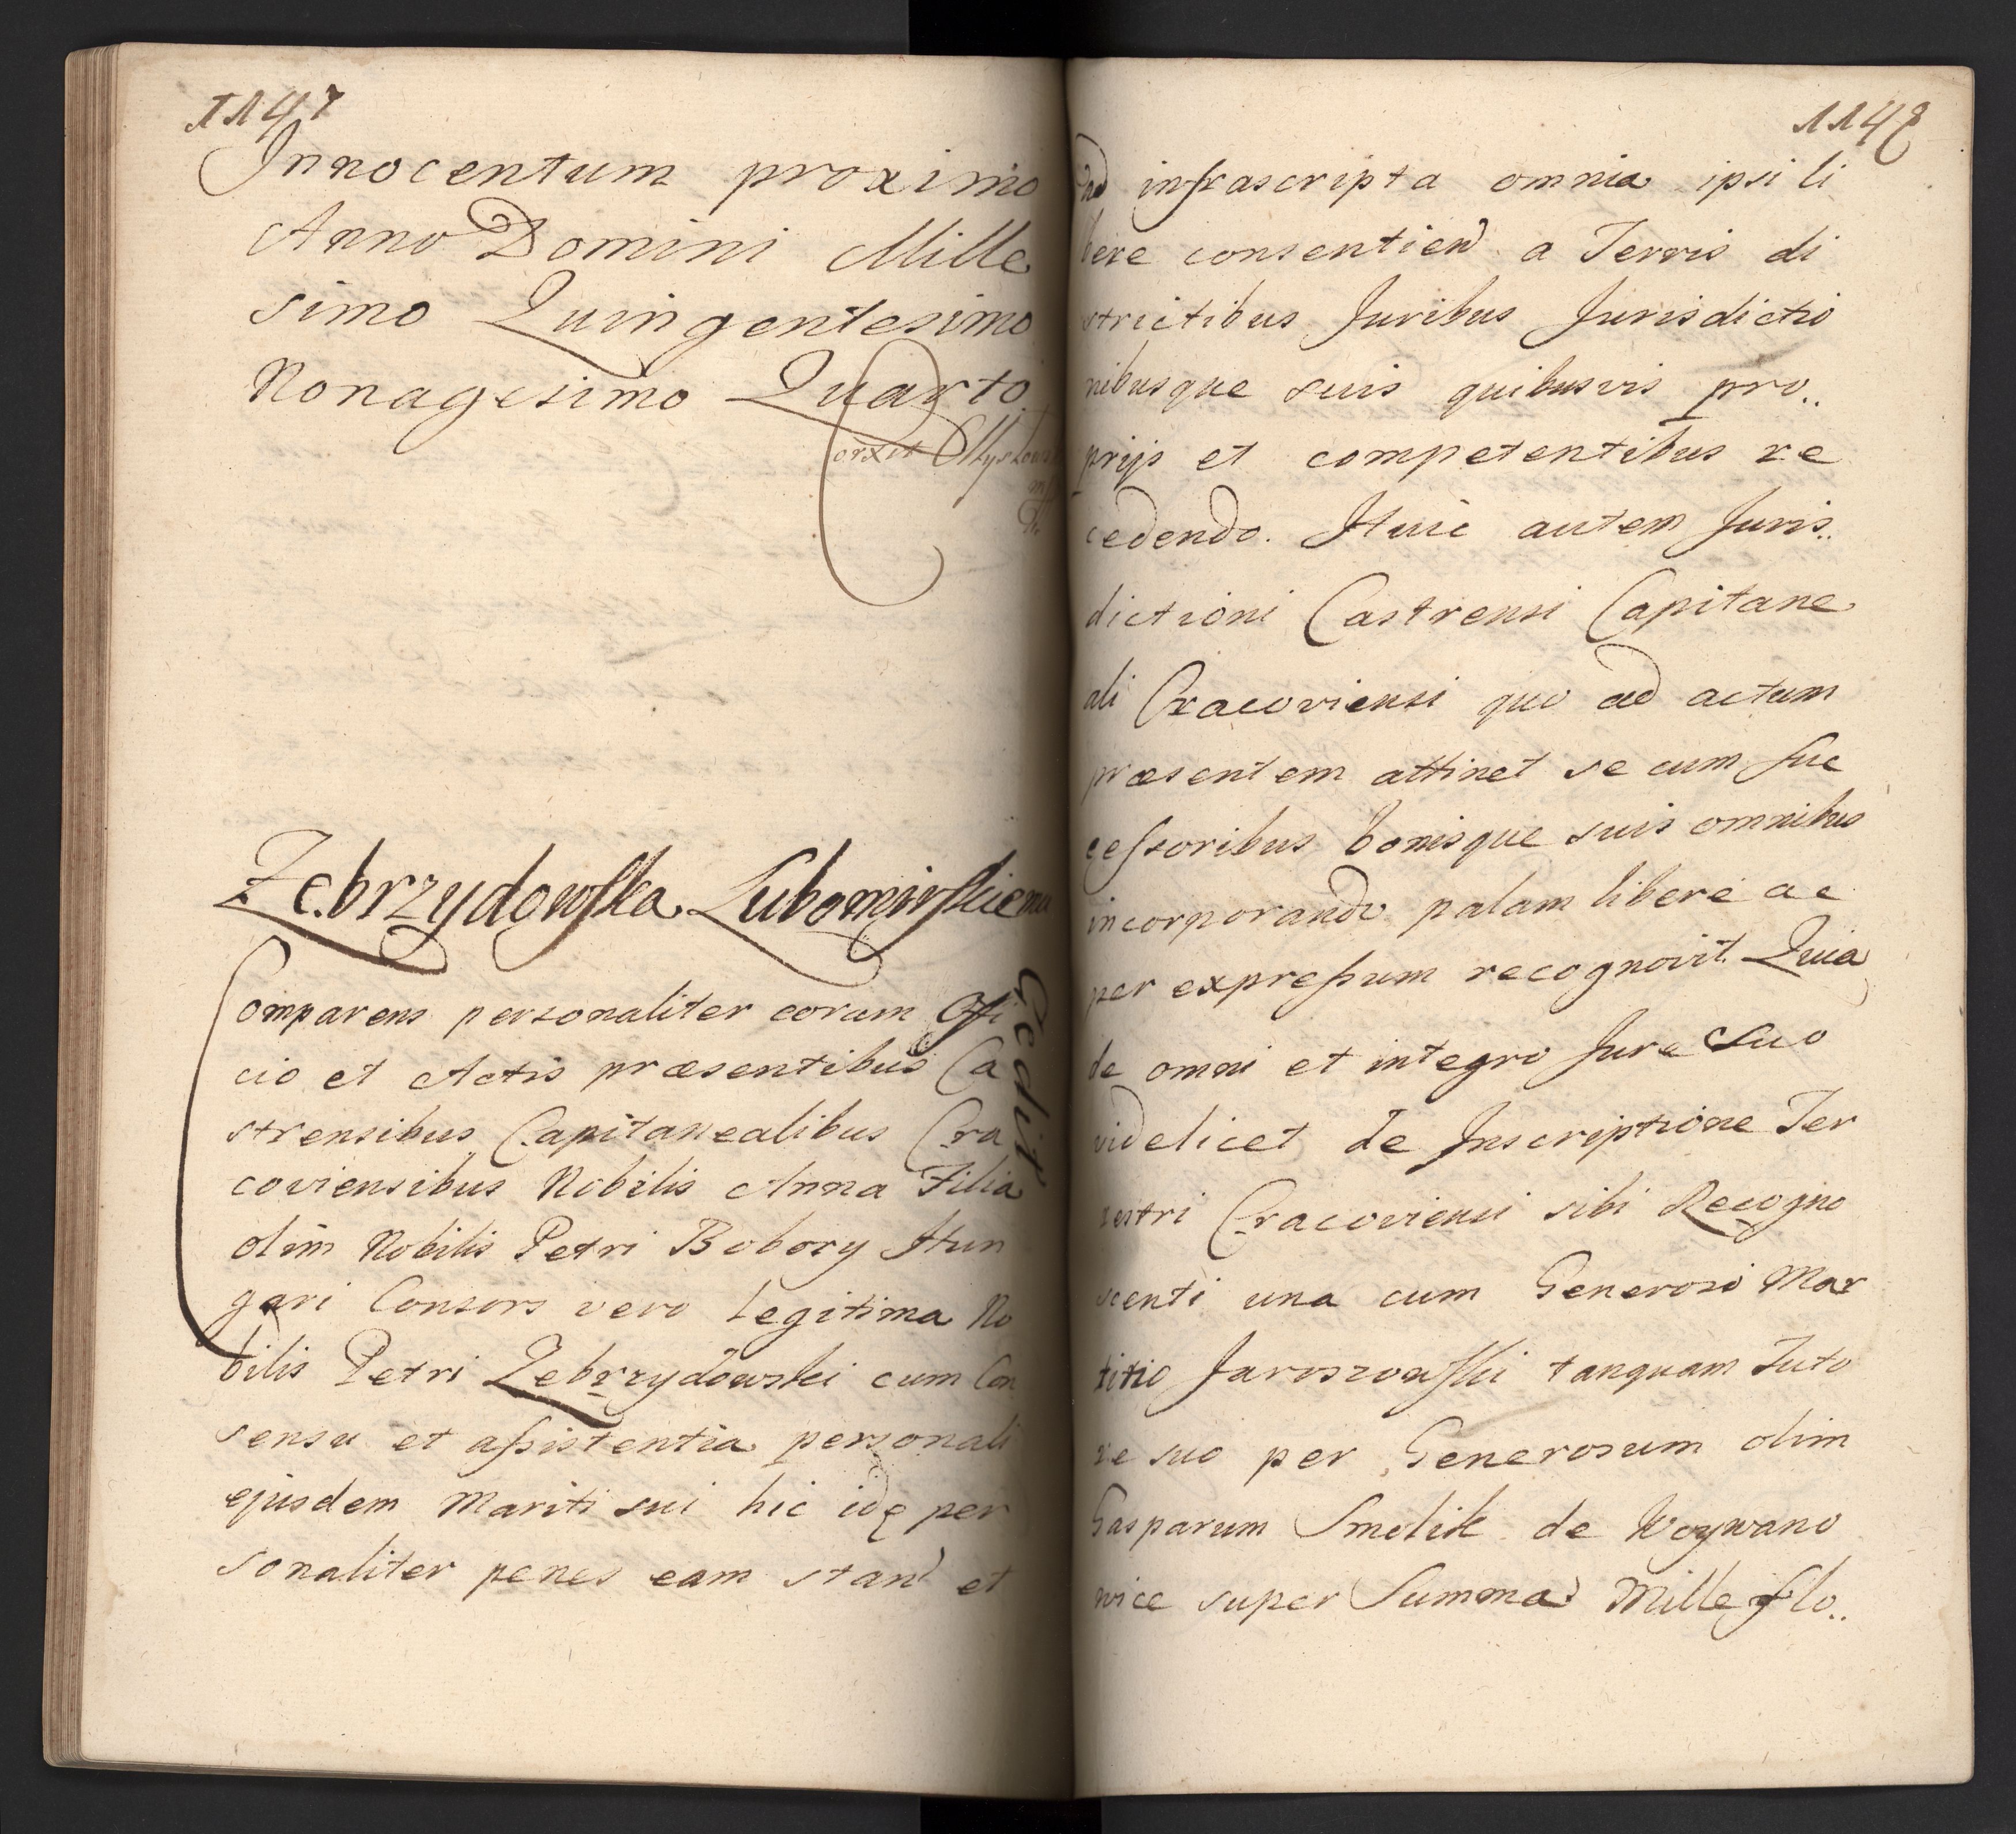 1147
Innocentum proximo
Anno Domini Mille
simo Quingentesimo
Nonagesimo Quarto
Zebrzydowska Lubomirskiemu
Cedit
Comparens personaliter coram Offi
cio et Actis præsentibus Ca
strensibus Capitanealibus Cra
coviensibus Nobilis Anna Filia
olim Nobilis Petri Bobory Hun
gari Consors vero Legitima No
bilis Petri Zebrzydowski cum Con
sensu et assistentia personali
ejusdem Mariti sui hic idę per
sonaliter penes eam stand et
1148
ad infrascripta omnia ipsi li
bere consentiend a Terris di
strictibus Juribus Jurisdictio
nibusque suis quibusvis pro..
prijs et competentibus re
cedendo. Huic autem Juris..
dictioni Castrensi Capitane
ali Cracoviensi quo ad actum
præsentem attinet se cum suc
cessoribus bonisque suis omnibus
incorporando palam libere ac
per expressum recognovit. Quia
de omni et integro Jure Suo
videlicet de Inscriptione Ter
restri Cracoviensi sibi Recogno
scenti una cum Generoso Mar
titio Jaroszowski tanquam Tuto
re suo per Generosum olim
Gasparum Smolik de Woywano
wice super Summa Mille flo..